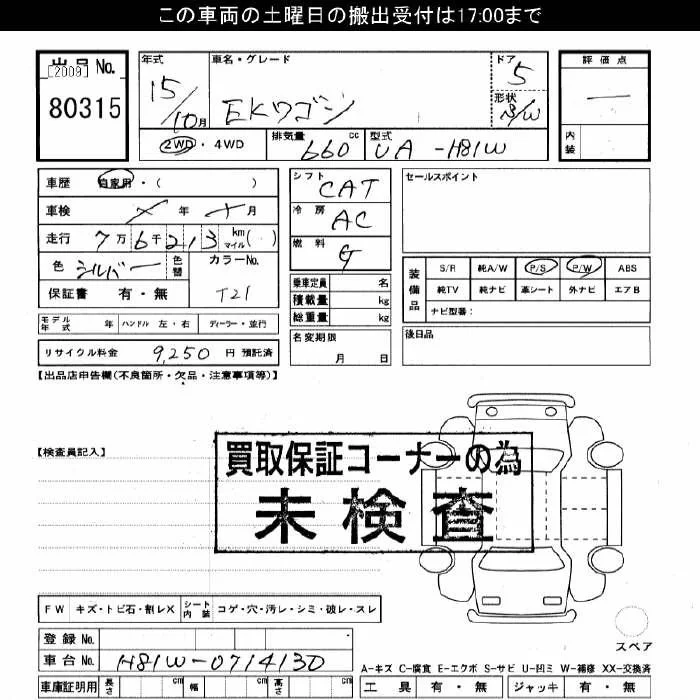 この車両の土曜日の搬出受付は17:00まで
出品 No.
[2009]
80315
年式
15/10月
車名・グレード
EKワゴン
ドア
5
形状
評価点
―
内装
2WD・4WD
排気量 660 cc
型式 UA-H81W
車歴 自家用・( )
車検 年 月
走行 7万6千213 km マイル( )
色 シルバー 色替
カラーNo.
T21
保証書 有・無
シフト CAT
冷房 AC
燃料 G
乗車定員 名
積載量 kg
総重量 kg
セールスポイント
装備品
S/R 純A/W P/S P/W ABS
純TV 純ナビ 革シート 外ナビ エアB
ナビ型番:
モデル年式 年 ハンドル 左・右 ディーラー・並行
名変期限
月 日
後日品
リサイクル料金 9,250 円 預託済
【出品店申告欄(不良箇所・欠品・注意事項等)】
【検査員記入】
買取保証コーナーの為
未検査
FW キズ・トビ石・割レX シート内装 コゲ・穴・汚レ・シミ・破レ・スレ
スペア
登録 No.
車台 No. H81W-0714130
A-キズ C-腐食 E-エクボ S-サビ U-凹ミ W-補修 XX-交換済
車庫証明用 長さ cm 幅 cm 高さ cm
工具 有・無 ジャッキ 有・無